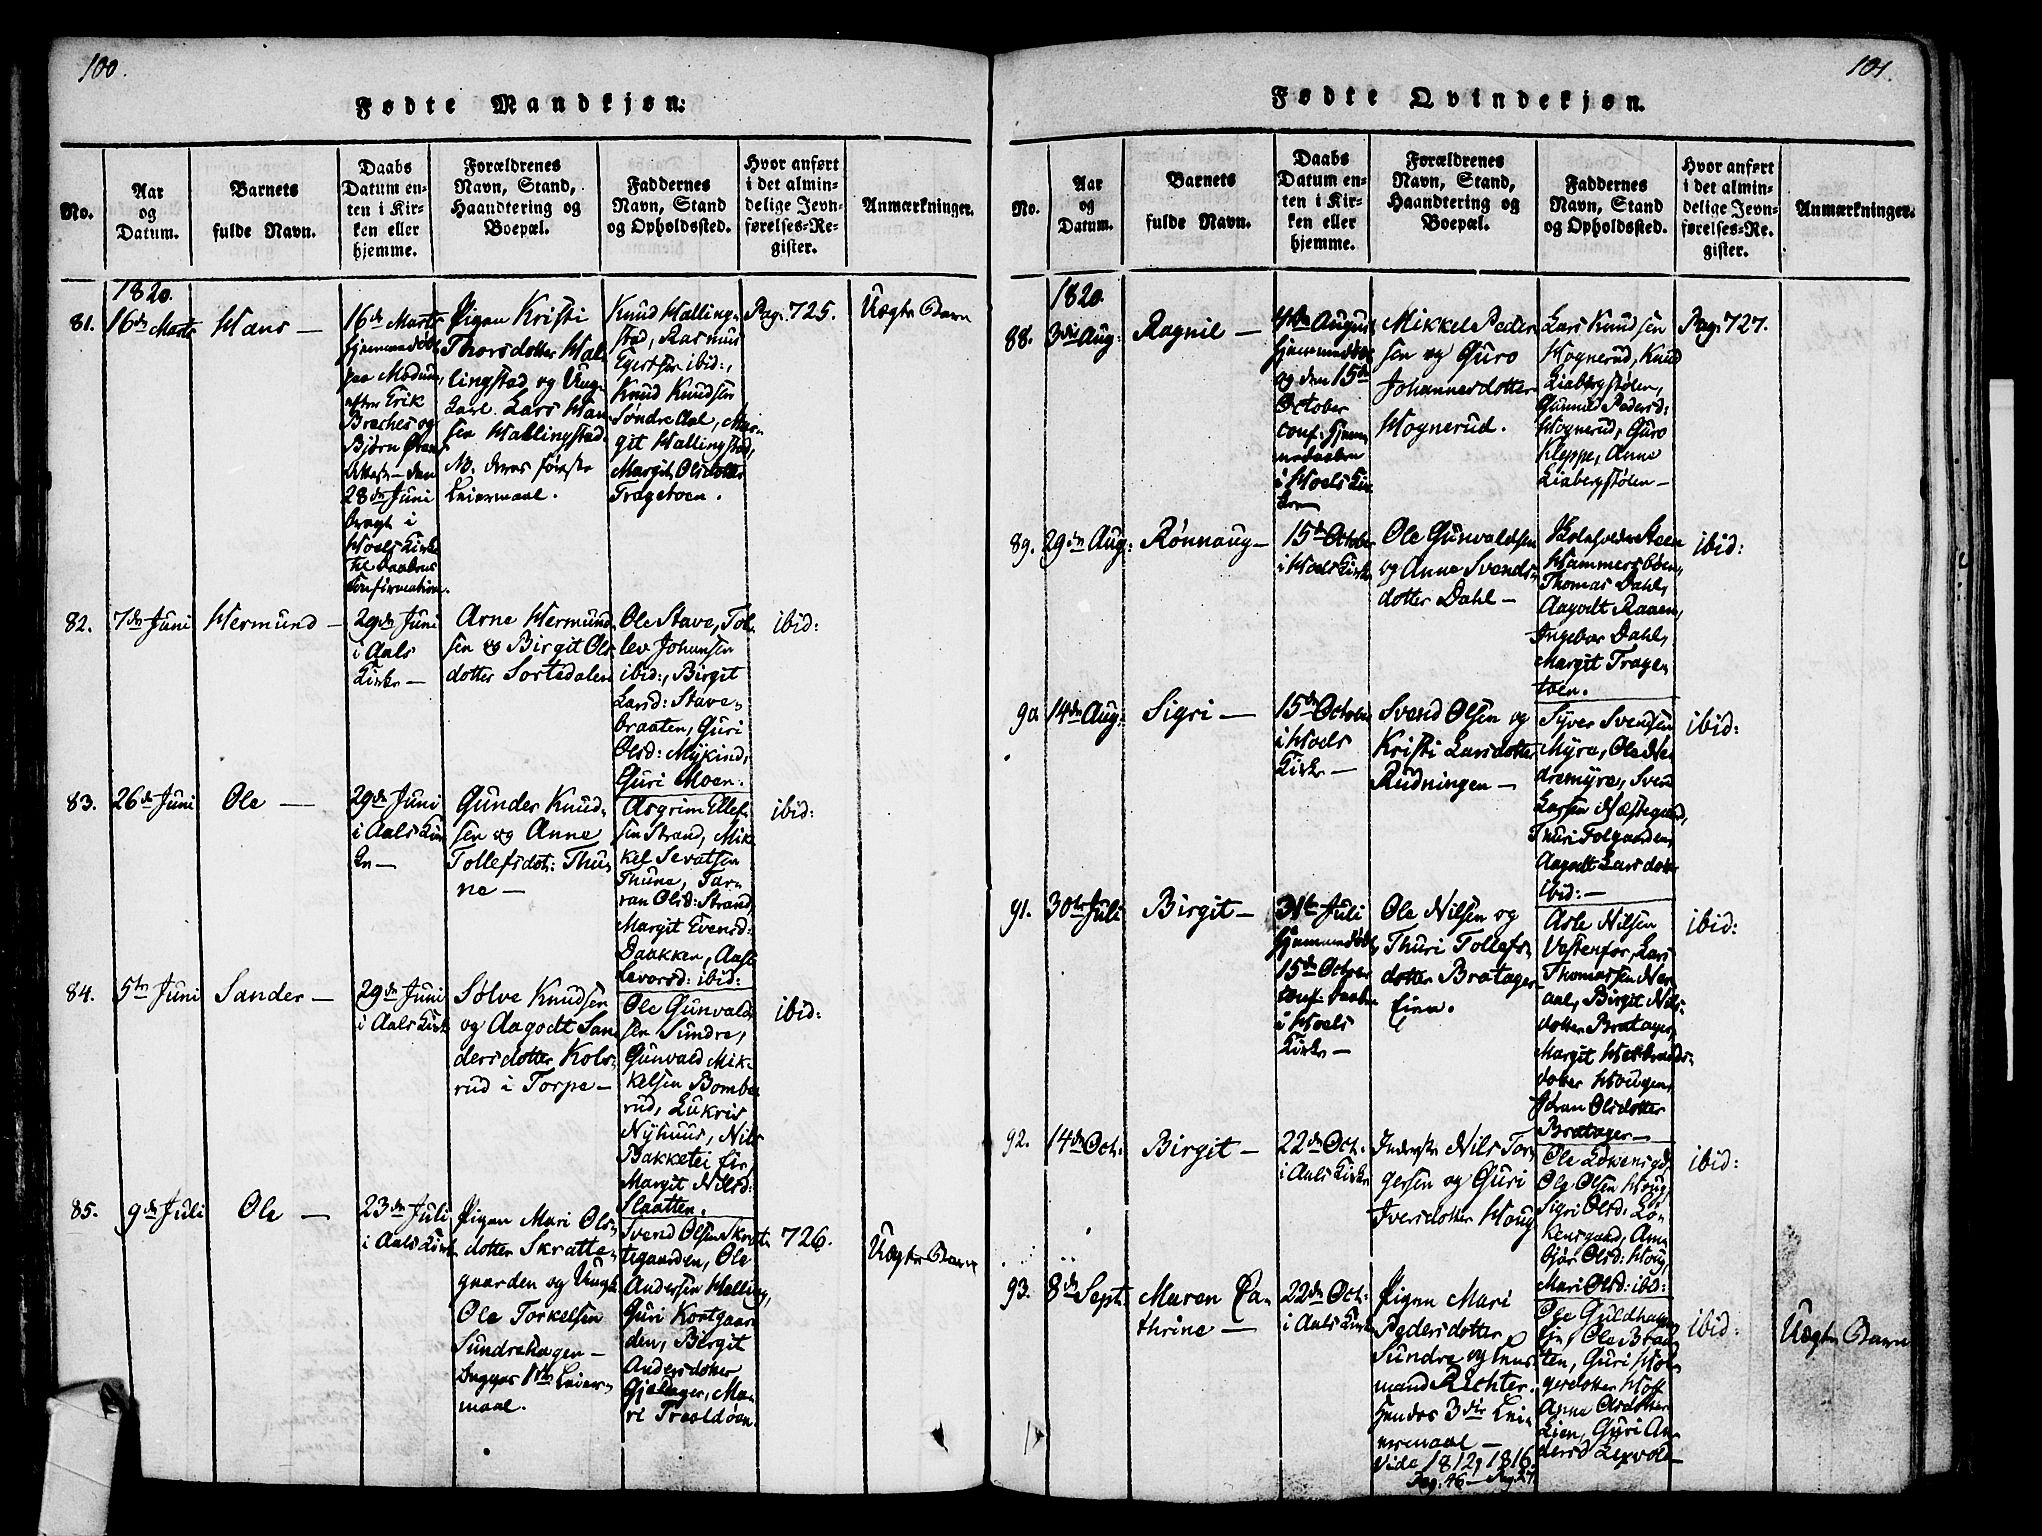 100.
Fødte Mandkjøn:
No.
Aar
og
Datum.
Barnets
fulde Navn.
Daabs
Datum en-
ten i Kir-
ken eller
hjemme.
Forældrenes
Navn, Stand,
Haandtering og
Boepæl.
Faddernes
Navn, Stand
og Opholdssted.
Hvor anført
i det almin-
delige Jevn-
førelses-Re-
gister.
Anmærkninger.
1820.
81.
16de Marts
Hans —
16de Marts
hjemmedøbt
paa Modum,
efter Erik
Braches og
Bjørn
Attest — den
28de Juni
bragt i
Hoels Kirke
til Daabens
Confirmation.
Pigen Kristi
Thorsdotter Hal-
lingstad og Ung-
karl Lars Han-
sen Hallingstad.
NB. deres første
Leiermaal.
Knud Halling-
stad, Rasmus
Egertsen ibid:,
Knud Knudsen
Søndre Aal, Mar-
git Hallingstad,
Margit Olsdotter
Trageton.
Pag. 725.
Uægte Barn
82.
7de Juni
Hermund —
29de Juni
i Aals
Kirke —
Arne Hermund-
sen og Birgit Ols-
dotter Sortedalen
Ole Stave, Tol-
lev Johansen
ibid:, Birgit
Larsd: Stave-
braaten, Guri
Olsd: Mykind,
Guri Moen.
ibid:
83.
26de Juni
Ole —
29de Juni
i Aals Kir-
ke —
Gunder Knud-
sen og Anne
Tollefsdot: Thu-
ne —
Asgrim Ellef-
sen Strand, Mik-
kel Sevatsen
Thune, Tar-
ran Olsd: Strand,
Margit Evensd:
Daakken, Aase
Levorsd: ibid:
ibid:
84.
5te Juni
Sander —
29de Juni
i Aals Kirke
Sølve Knudsen
og Aagodt San-
dersdotter Kols-
rud i Torpe —
Ole Gunvald-
sen Sundre,
Gunvald Mik-
kelsen Bombe-
rud, Lukris
Nyhuus, Nils
Bakketeigen,
Margit Nilsd:
Slaatten.
ibid:
85.
9de Juli
Ole —
23de Juli
i Aals Kirke
Pigen Mari Ols-
dotter Skratte-
gaarden og Ungk.
Ole Torkelsen
Sundrehagen —
begges 1ste Leier-
maal.
Svend Olsen Skrat-
tegaarden, Ole
Andersen Halling,
Guri Kortgaar-
den, Birgit
Andersdotter
Gjeldager, Ma-
ri Trøaldøen.
726.
Uægte Barn
101.
Fødte Qvindekjøn.
No.
Aar
og
Datum.
Barnets
fulde Navn.
Daabs
Datum en-
ten i Kir-
ken eller
hjemme.
Forældrenes
Navn, Stand,
Haandtering og
Boepæl.
Faddernes
Navn, Stand
og Opholdssted.
Hvor anført
i det almin-
delige Jevn-
førelses-Re-
gister.
Anmærkninger.
1820.
88.
3die Aug:
Ragnil —
4de August
hjemmedøbt
og den 15de
October
conf. hjem-
medaaben
i Hoels Kir-
ke —
Mikkel Peder-
sen og Guro
Johannesdotter
Hognerud.
Lars Knudsen
Hognerud, Knud
Liabergstølen,
Gunild Pedersd:
Hognerud, Guro
Kleppe, Anne
Liabergstølen —
Pag: 727.
89.
29de Aug:
Rønnaug —
15de October
i Hoels Kirke
Ole Gunvaldsen
og Anne Svends-
dotter Dahl —
Steen
Hammersbøen,
Thomas Dahl,
Aagodt Raaen,
Ingebor Dahl,
Margit Trage-
toen.
ibid:
90.
14de Aug:
Sigri —
15de October
i Hoels
Kirke —
Svend Olsen og
Kristi Larsdotter
Rudningen —
Syver Svendsen
Myre, Ole Ne-
dremyre, Svend
Larsen Næstegaard,
Thuri Tolgaarden,
Aagodt Larsdotter
ibid: —
ibid:
91.
30te Juli
Birgit —
31te Juli
hjemmedøbt,
15de October
conf. Daaben
i Hoels
Kirke —
Ole Nilsen og
Thuri Tollefs-
dotter Bratager-
Eien.
Asle Nilsen
Vestenfor, Lars
Thomassen Ner-
aal, Birgit Nils-
dotter Bratager,
Margit Helbrands-
dotter Hougen,
Jøran Olsdotter
Bratager —
ibid:
92.
14de Oct:
Birgit —
22de Oct:
i Aals Kirke
Inderste Nils Tor-
gersen og Guri
Iversdotter Houg
Ole Løkensgd,
Ole Olsen Houg,
Sigri Olsd: Lø-
kensgaard, Am-
bjør Olsd: Houg,
Mari Olsd: ibid:
ibid:
93.
8de Sept:
Maren Ca-
thrine —
22de Oct:
i Aals Kirke
Pigen Mari
Pedersdotter
Sundre og
mand Richter.
hendes 3die Lei-
ermaal —
Vide 1812, 1816.
Pag: 46 — Pag: 27.
Ole Guldhagen,
Ole Braa-
ten, Guri Hol-
gerdotter Hoff
Anne Olsdotter
Lien, Guri An-
dersd
ibid:
Uægte Barn